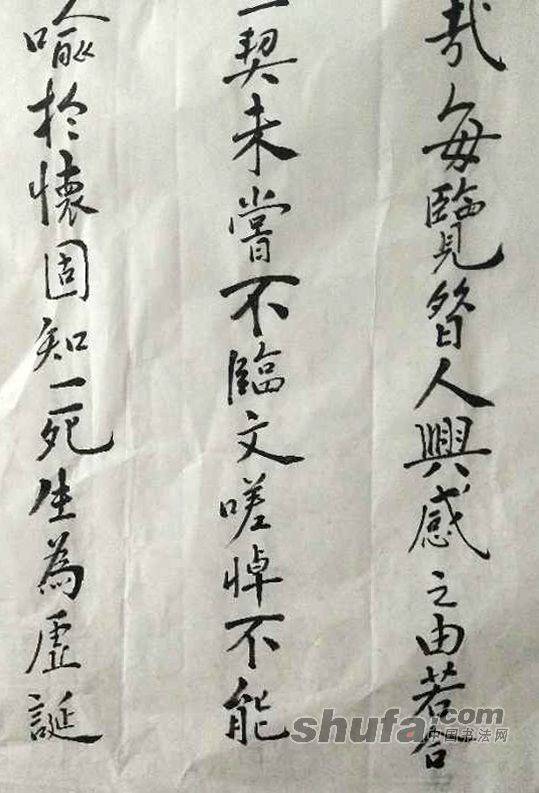 哉每覽昝人興感之由若合
一契未嘗不臨文嗟悼不能
喻於懷固知一死生為虛誕
shufa.com
中国书法网